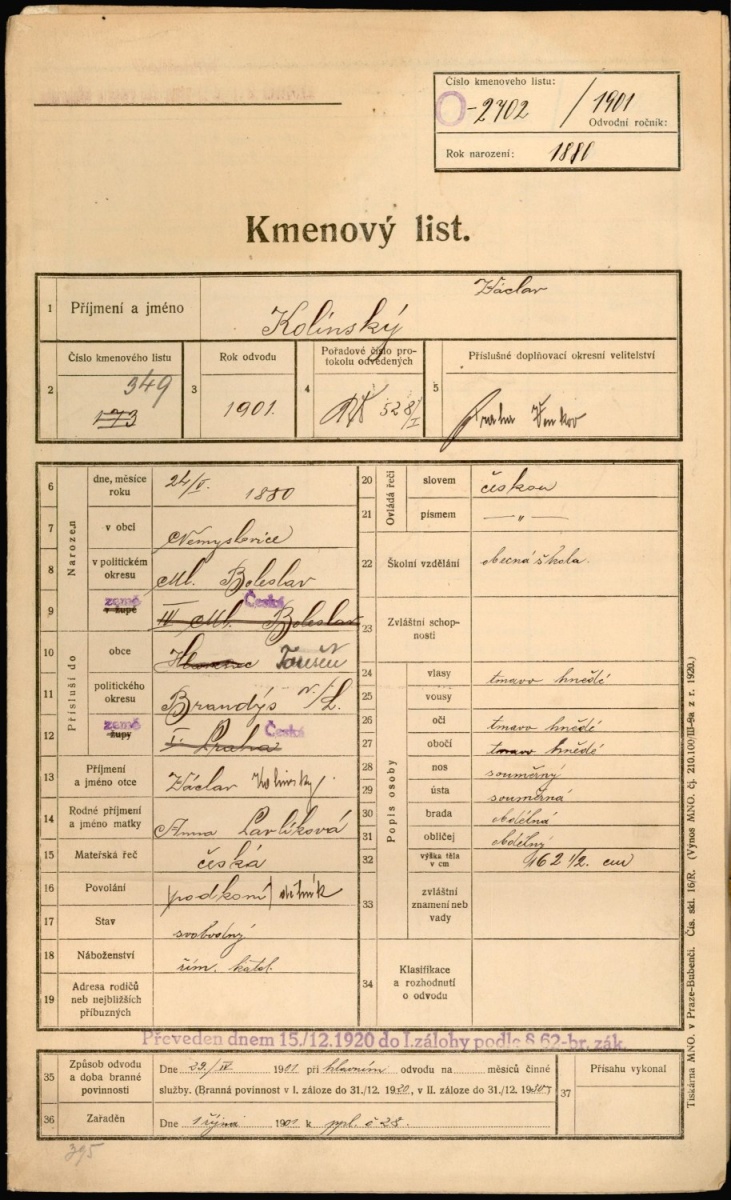 Číslo kmenového listu:
O-2702 / 1901
Odvodní ročník:
Rok narození: 1880
Kmenový list.
1 Příjmení a jméno Kolínský Václav
2 Číslo kmenového listu 349 173
3 Rok odvodu 1901.
4 Pořadové číslo protokolu odvedených 528/I
5 Příslušné doplňovací okresní velitelství Praha Venkov
Narozen
6 dne, měsíce roku 24/V. 1880
7 v obci Nemyslovice
8 v politickém okresu Ml. Boleslav
9 v župě země III Ml. Boleslav Česká
Přísluší do
10 obce Toušeň
11 politického okresu Brandýs n/L.
12 župy země I. Praha Česká
13 Příjmení a jméno otce Václav Kolínský
14 Rodné příjmení a jméno matky Anna Pavlíková
15 Mateřská řeč česká
16 Povolání podkoní dělník
17 Stav svobodný
18 Náboženství řím. katol.
19 Adresa rodičů neb nejbližších příbuzných
Ovládá řeči
20 slovem českou
21 písmem — „ —
22 Školní vzdělání obecná škola.
23 Zvláštní schopnosti
Popis osoby
24 vlasy tmavo hnědé
25 vousy
26 oči tmavo hnědé
27 obočí tmavo hnědé
28 nos souměrný
29 ústa souměrná
30 brada obdélná
31 obličej obdélný
32 výška těla v cm 162 1/2. cm
33 zvláštní znamení neb vady
34 Klasifikace a rozhodnutí o odvodu
Převeden dnem 15./12.1920 do I.zálohy podle § 62-br. zák.
35 Způsob odvodu a doba branné povinnosti Dne 29./IV. 1901 při hlavním odvodu na — měsíců činné
služby. (Branná povinnost v I. záloze do 31./12. 1920, v II. záloze do 31./12. 1930)
36 Zařaděn Dne 1 října 1901 k ppl. č 28.
37 Přísahu vykonal
395
Tiskárna MNO. v Praze-Bubenči. Čís. skl. 16/R. (Výnos MNO. čj. 210.100/III-9a z r. 1920.)